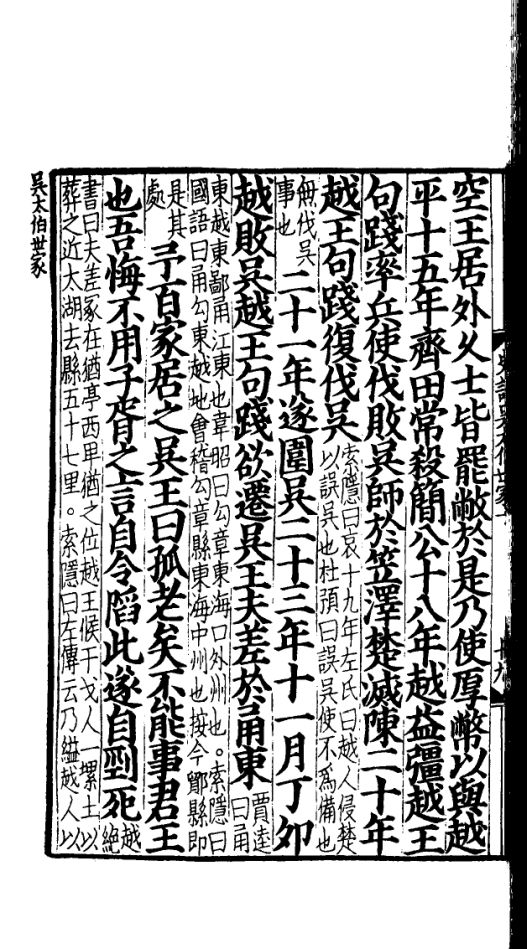 空王居外久士皆罷敝於是乃使厚幣以與越
平十五年齊田常殺簡公十八年越益彊越王
句踐率兵使伐敗吳師於笠澤楚滅陳二十年
越王句踐復伐吳
索隱曰哀十九年左氏曰越人侵楚
以誤吳也杜預曰誤吳使不爲備也
無伐吳
事也
二十一年遂圍吳二十三年十一月丁卯
越敗吳越王句踐欲遷吳王夫差於甬東
賈逵
曰甬
東越東鄙甬江東也韋昭曰勾章東海口外州也。索隱曰
國語曰甬勾東越地會稽勾章縣東海中州也按今鄮縣即
是其
處
予百家居之吳王曰孤老矣不能事君王
也吾悔不用子胥之言自令陷此遂自剄死
越
絶
書曰夫差冢在猶亭西卑猶之位越王候干戈人一㙼土以
葬之近太湖去縣五十七里。索隱曰左傳云乃縊越人以
吳太伯世家